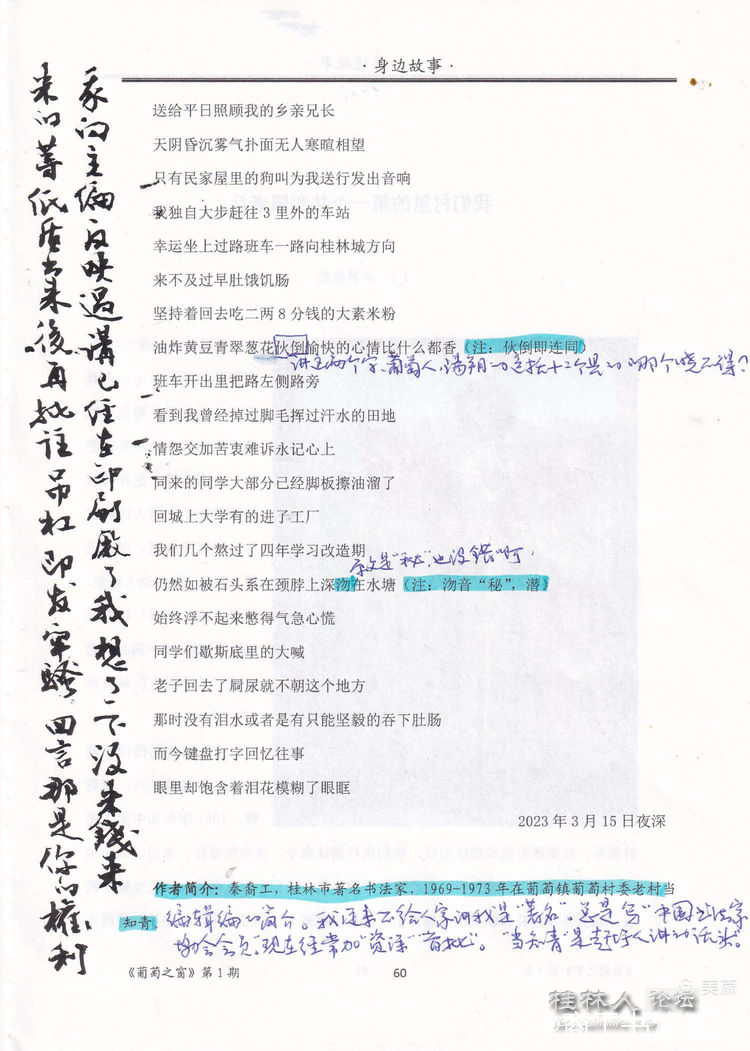 ·身边故事·
送给平日照顾我的乡亲兄长
天阴昏沉雾气扑面无人寒暄相望
只有民家屋里的狗叫为我送行发出音响
我独自大步赶往3里外的车站
幸运坐上过路班车一路向桂林城方向
来不及过早肚饿饥肠
坚持着回去吃二两8分钱的大素米粉
油炸黄豆青翠葱花伙倒愉快的心情比什么都香(注:伙倒即连同)
讲这两个字,葡萄人,阳朔的包括十二个县的哪个晓不得?
班车开出里把路左侧路旁
看到我曾经掉过脚毛挥过汗水的田地
情怨交加苦衷难诉永记心上
同来的同学大部分已经脚板擦油溜了
回城上大学有的进了工厂
我们几个熬过了四年学习改造期
原文是"秘"也没错啊,
仍然如被石头系在颈脖上深沕在水塘(注:沕音“秘”,潜)
始终浮不起来憋得气急心慌
同学们歇斯底里的大喊
老子回去了屙尿就不朝这个地方
那时没有泪水或者是有只能坚毅的吞下肚肠
而今键盘打字回忆往事
眼里却饱含着泪花模糊了眼眶
2023年3月15日夜深
作者简介:秦裔工,桂林市著名书法家,1969-1973年在葡萄镇葡萄村委老村当
知青。
编辑编的简介。我从来不给人家讲我是"著名"。总是写"中国书法家
协会会员。现在经常加"资深""首批"。"当知青"是
《葡萄之窗》第1期
60
我向主编反映过讲已经在印刷厂了我想了一下没来钱来
来的等低质出来后再批注吊杠即发牢骚回言那是你的权利
桂林人论坛
美篇